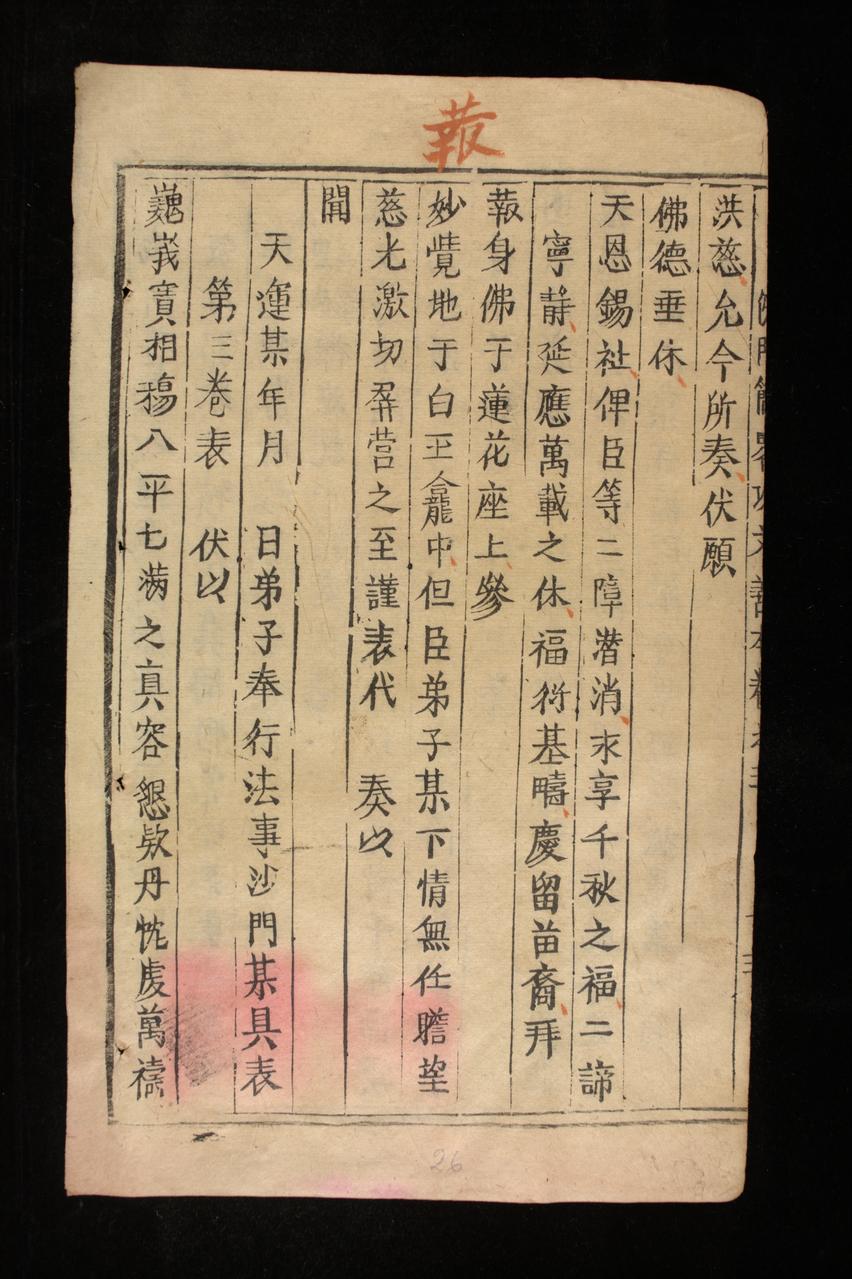 報
洪慈允今所奏伏願
佛德垂休
天恩錫祉俾臣等二障潛消永享千秋之福二諦
寧靜延應萬載之休福衍基疇慶留苗裔拜
報身佛于蓮花座上參
妙覺地于白玉龕中但臣弟子某下情無任瞻望
慈光激切屏营之至謹表代 奏以
聞
天運某年月 日弟子奉行法事沙門某具表
第三卷表 伏以
巍峩寶相 八平七满之真容懇欵丹忱虔萬禱
26